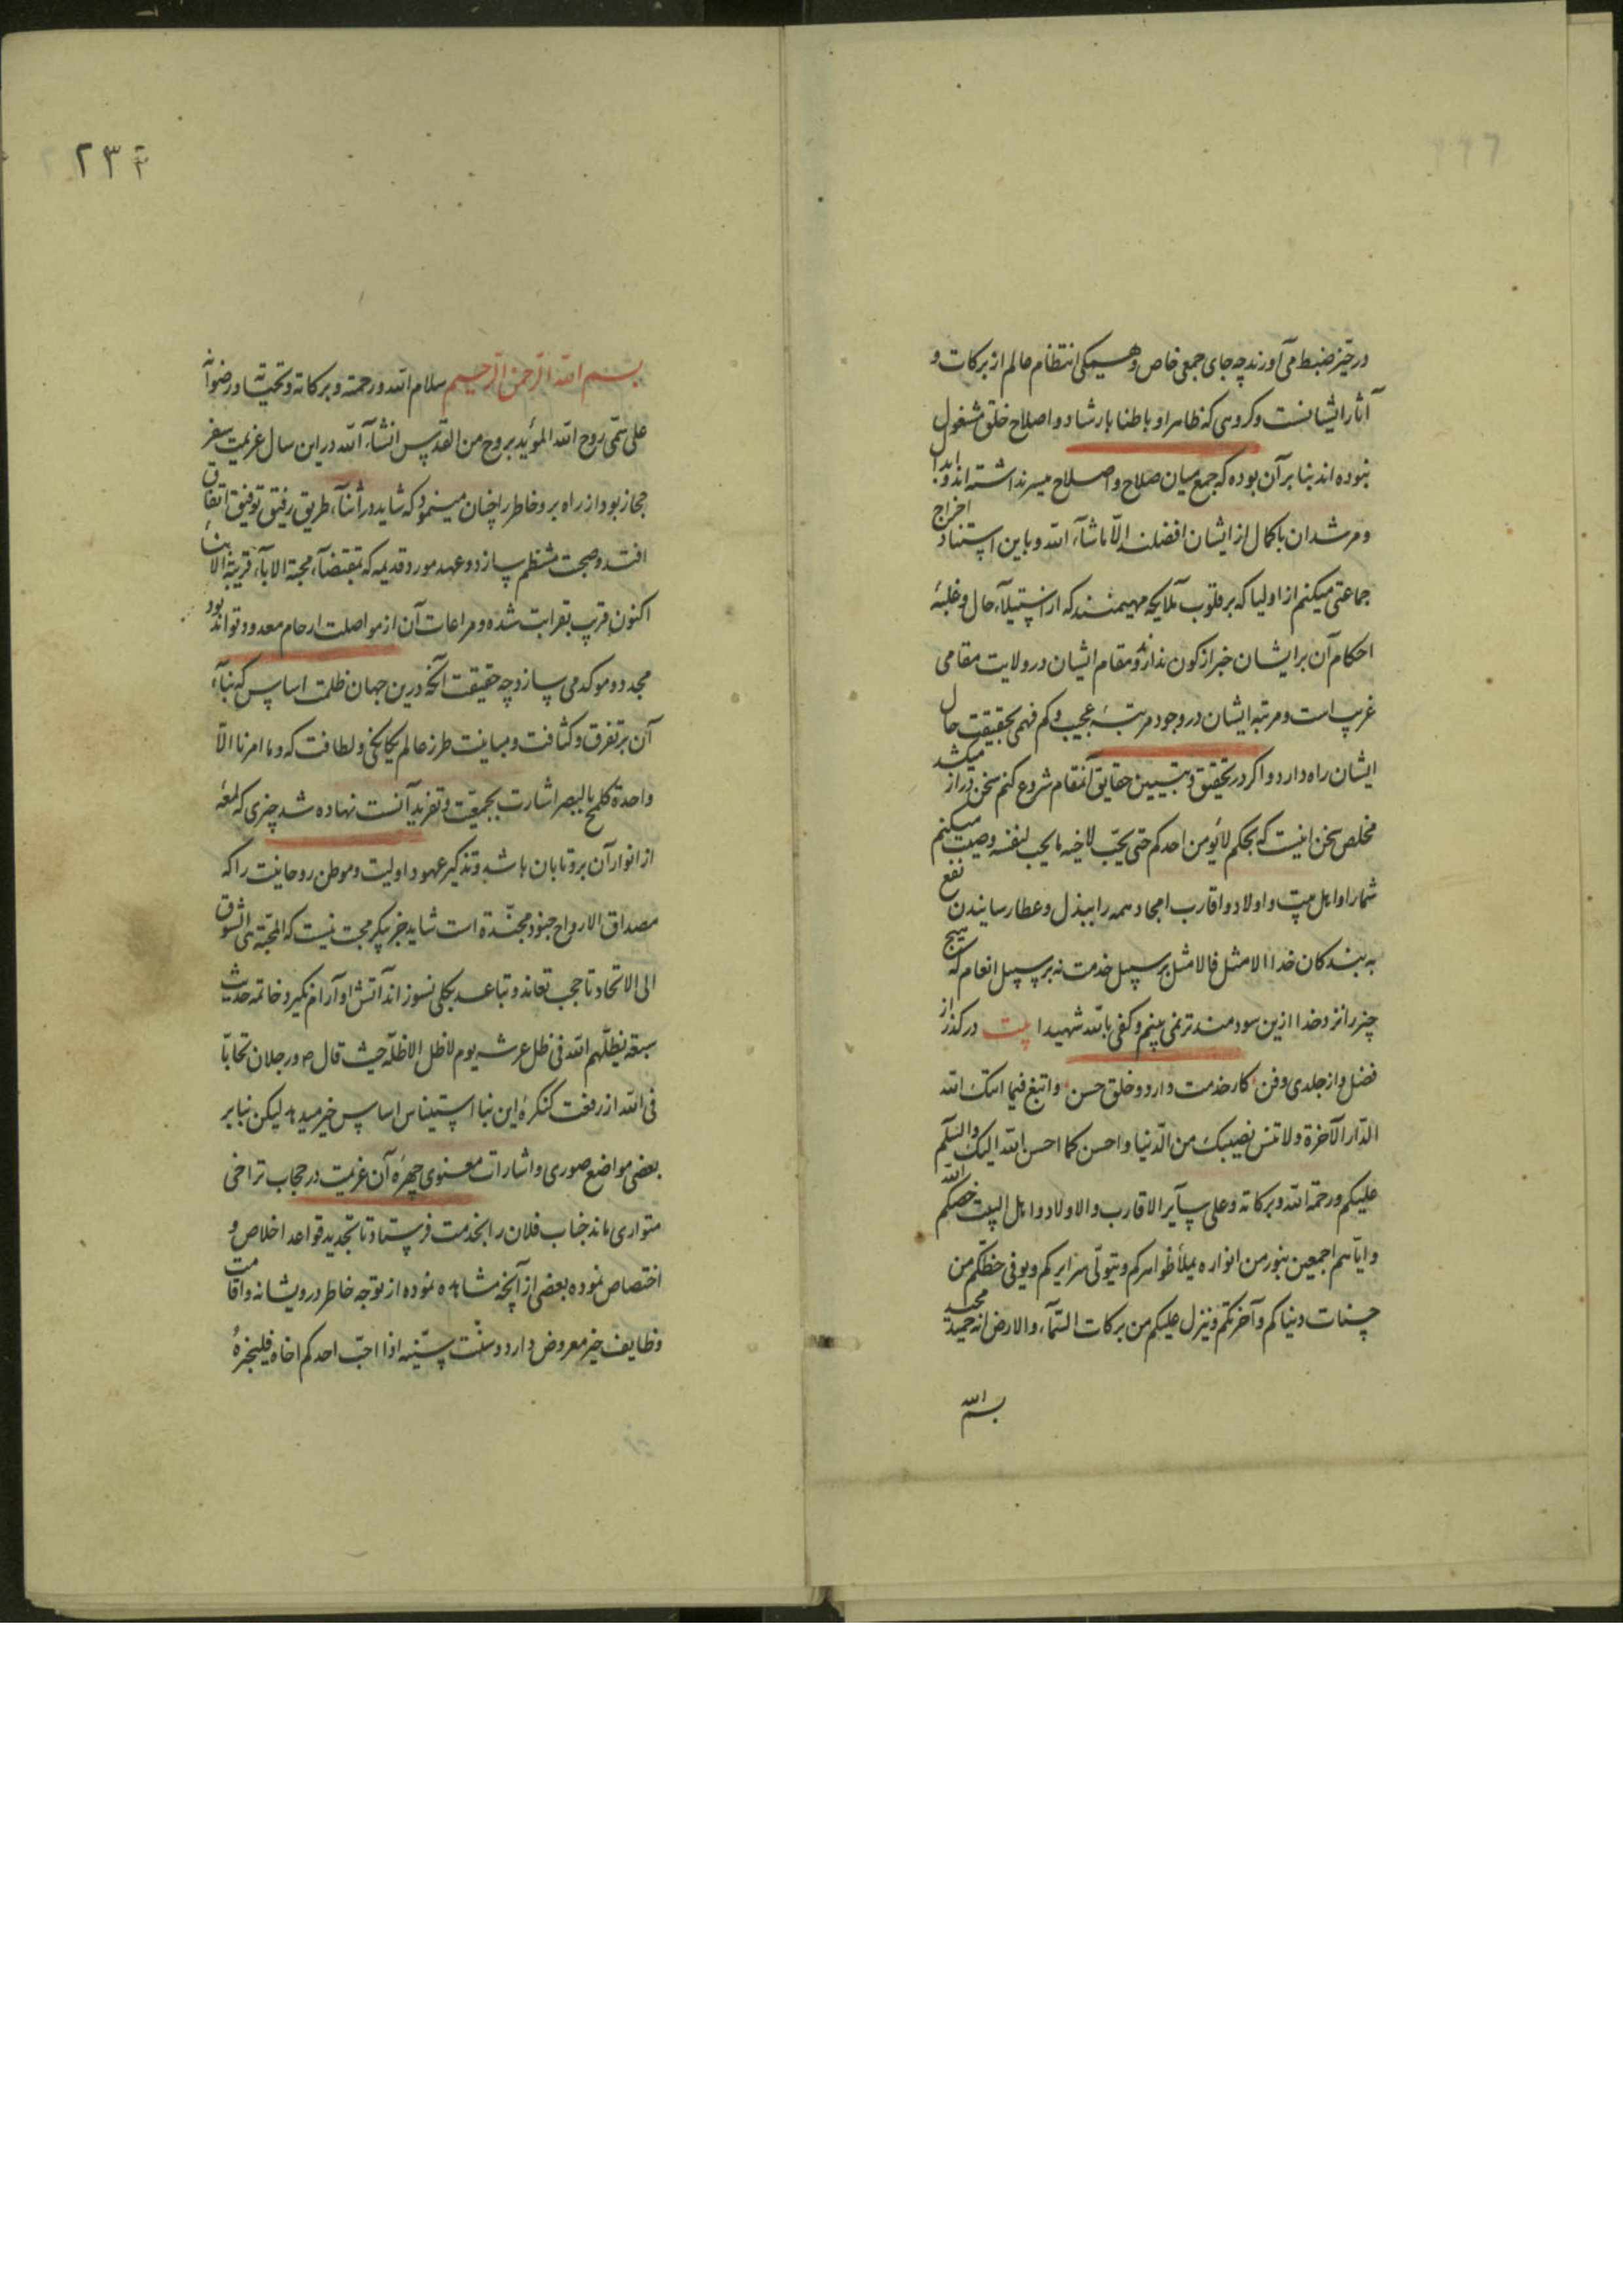 در حیز ضبط می آورند چه جای جمعی خاص و همکی انتظام عالم از برکات و
آثار ایشانست و کروهی که ظاهرا و باطنا بارشاد و اصلاح خلق مشغول
نبوده اند بنا بر آن بوده که جمع میان صلاح و اصلاح میسر نداشته اند و ابدا
و مرشدان با کمال از ایشان افضلند الا ماشآء الله و باین استثناد اخراج
جماعتی میکنم از اولیا که بر قلوب ملایکه مهیمنند که از استیلآء حال و غلبهٔ
احکام آن بر ایشان خبر از کون ندارند و مقام ایشان در ولایت مقامی
غریب است و مرتبه ایشان در وجود مرتبهٔ عجیب و کم فهمی بحقیقت حال
ایشان راه دارد و اکر در تحقیق و تبیین حقایق آنمقام شروع کنم سخن دراز میکشد
مخلص سخن اینست که بحکم لا یؤمن احدکم حتی یحب لاخیه ما یحب لنفسه وصیت میکنم
شما را و اهل بیت و اولاد و اقارب امجاد همه را ببذل و عطا رسانیدن نفع
به بندکان خدا الامثل فالامثل بر سبیل خدمت نه بر سبیل انعام که هیچ
چیز را نزد خدا ازین سودمندتر نمی بینم و کفی بالله شهیدا بیت درکذر از
فضل و از جلدی و فن کار خدمت دارد و خلق حسن و ابتغ فیما اتیک الله
الدار الآخرة و لا تنس نصیبک من الدنیا و احسن کما احسن الله الیک والسلم
علیکم و رحمة الله و برکاته و علی سآیر الاقارب و الاولاد و اهل البیت خصکم الله
و ایاهم اجمعین بنور من انواره یملأ ظواهرکم و یتولی سرایرکم و یوفی حظکم من
حسنات دنیاکم و آخرتکم و ینزل علیکم من برکات السمآء و الارض انه حمید مجید
بسم الله
٢٣٢
بسم الله الرحمن الرحیم سلام الله و رحمته و برکاته و تحیته و رضوانه
علی سمی روح الله المؤید بروح من القدس انشآء الله در این سال عزیمت سفر
حجاز بود از راه بر و خاطر را چنان مینمود که شاید در اثنآء طریق رفیق توفیق اتفاق
افتد و صحبت منتظم سازد و عهد مورد قدیمه که بمقتضآء محبة الابآء قربة الابنآء
اکنون قریب بقرابت شده و مراعات آن از مواصلت ارحام معدود تواند بود
مجدد و موکد می سازد چه حقیقت آنکه درین جهان ظلمت اساس که بنآء
آن بر تفرق و کثافت و مباینت طرز عالم یکانکی و لطافت که و ما امرنا الا
واحدة کلمح بالبصر اشارت بجمعیت و تفرید آنست نهاده شد چیزی که لمعهٔ
از انوار آن برو تابان باشد و تذکیر عهود اولیت و موطن روحانیت را که
مصداق الارواح جنود مجندة است شاید جز پیکر محبت نیست که المحبة هی الشوق
الی الاتحاد تا حجب تعاند و تباعد بکلی نسوزاند آتش او آرام نکیرد و خاتمه حدیث
سبعة یظلهم الله فی ظل عرشه یوم لا ظل الا ظله حیث قال ص و رجلان تحابا
فی الله از رفعت کنکرهٔ این بنا استیناس اساس خبر میدهد لیکن بنا بر
بعضی مواضع صوری و اشارات معنوی چهرهٔ آن عزیمت در حجاب تراخی
متواری ماند جناب فلان را بخدمت فرستاد تا تجدید قواعد اخلاص و
اختصاص نموده بعضی از آنچه مشاهده نموده از توجه خاطر درویشانه و اقامت
وظایف خیر معروض دارد و سنت سنیه اذا احب احدکم اخاه فلیخبرهٔ